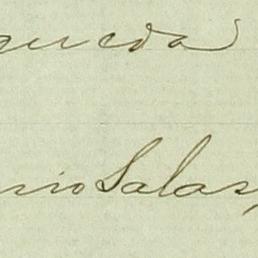 queda
nio Salas,